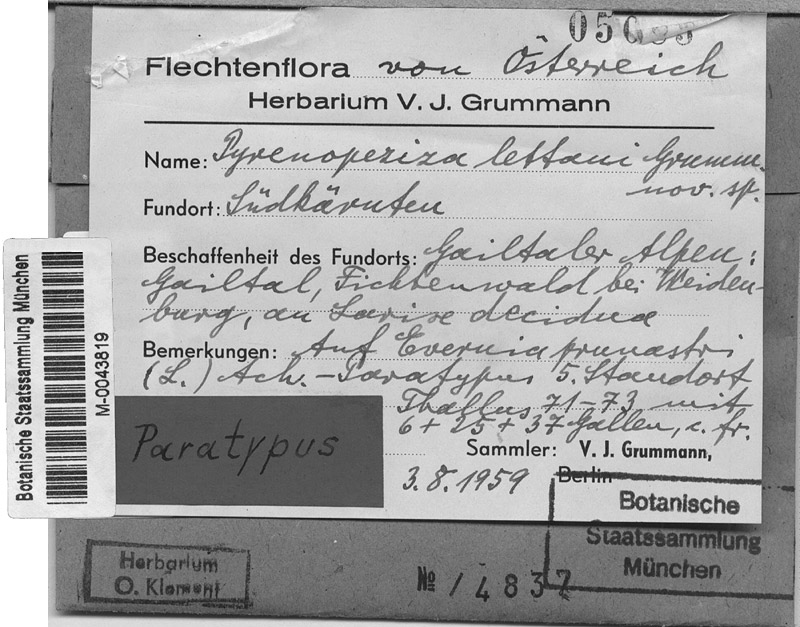 Flechtenflora von Österreich
Herbarium V. J. Grummann
Name: Pyrenopeziza lettaui Grumm.
nov. sp.
Fundort: Südkärnten
Beschaffenheit des Fundorts: Gailtaler Alpen:
Gailtal, Fichtenwald bei Weiden-
burg, an Larix decidua
Bemerkungen: Auf Evernia prunastri
(L.) Ach. - Paratypus 5. Standort
Thallus 71-73 mit
6+25+37 Gallen, c. fr.
Paratypus
Sammler: V. J. Grummann,
3.8.1959 Berlin
Botanische
Staatssammlung
München
Herbarium
O. Klement
№ 14837
Botanische Staatssammlung München
M-0043819